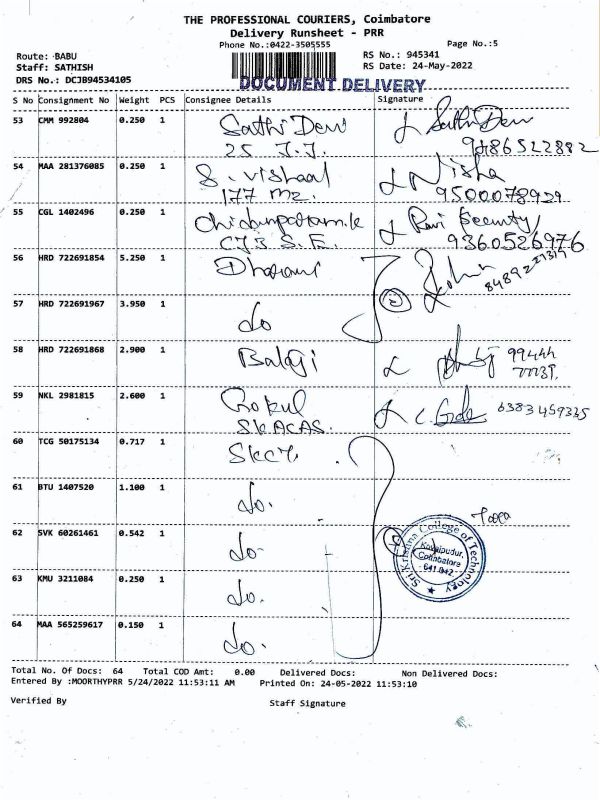 THE PROFESSIONAL COURIERS, Coimbatore
Delivery Runsheet - PRR
Phone No.:0422-3505555
Page No.:5
Route: BABU
RS No.: 945341
Staff: SATHISH
RS Date: 24-May-2022
DRS No.: DCJB94534105
DOCUMENT DELIVERY
S No Consignment No Weight PCS Consignee Details Signature
53 CMM 992804 0.250 1 Sathi Devi SathiDevi
25 J.J. 9486522882
54 MAA 281376085 0.250 1 S. Vishaal Nisha
177 M2. 9500078929
55 CGL 1402496 0.250 1 Chidumpatam.k Ravi Security
CJB S.E. 9360526976
56 HRD 722691854 5.250 1 Dharani
57 HRD 722691967 3.950 1 do 2
58 HRD 722691868 2.900 1 Balaji 99444
59 NKL 2981815 2.600 1 Gokul 6383459325
SKACAS.
60 TCG 50175134 0.717 1 SKCT.
61 BTU 1407520 1.100 1 do.
62 SVK 60261461 0.542 1 do-
63 KMU 3211084 0.250 1 do.
64 MAA 565259617 0.150 1 do.
Sri Krishna College of Technology
Kovaipudur,
Coimbatore
641 042
Total No. Of Docs: 64 Total COD Amt: 0.00 Delivered Docs: Non Delivered Docs:
Entered By :MOORTHYPRR 5/24/2022 11:53:11 AM Printed On: 24-05-2022 11:53:10
Verified By Staff Signature